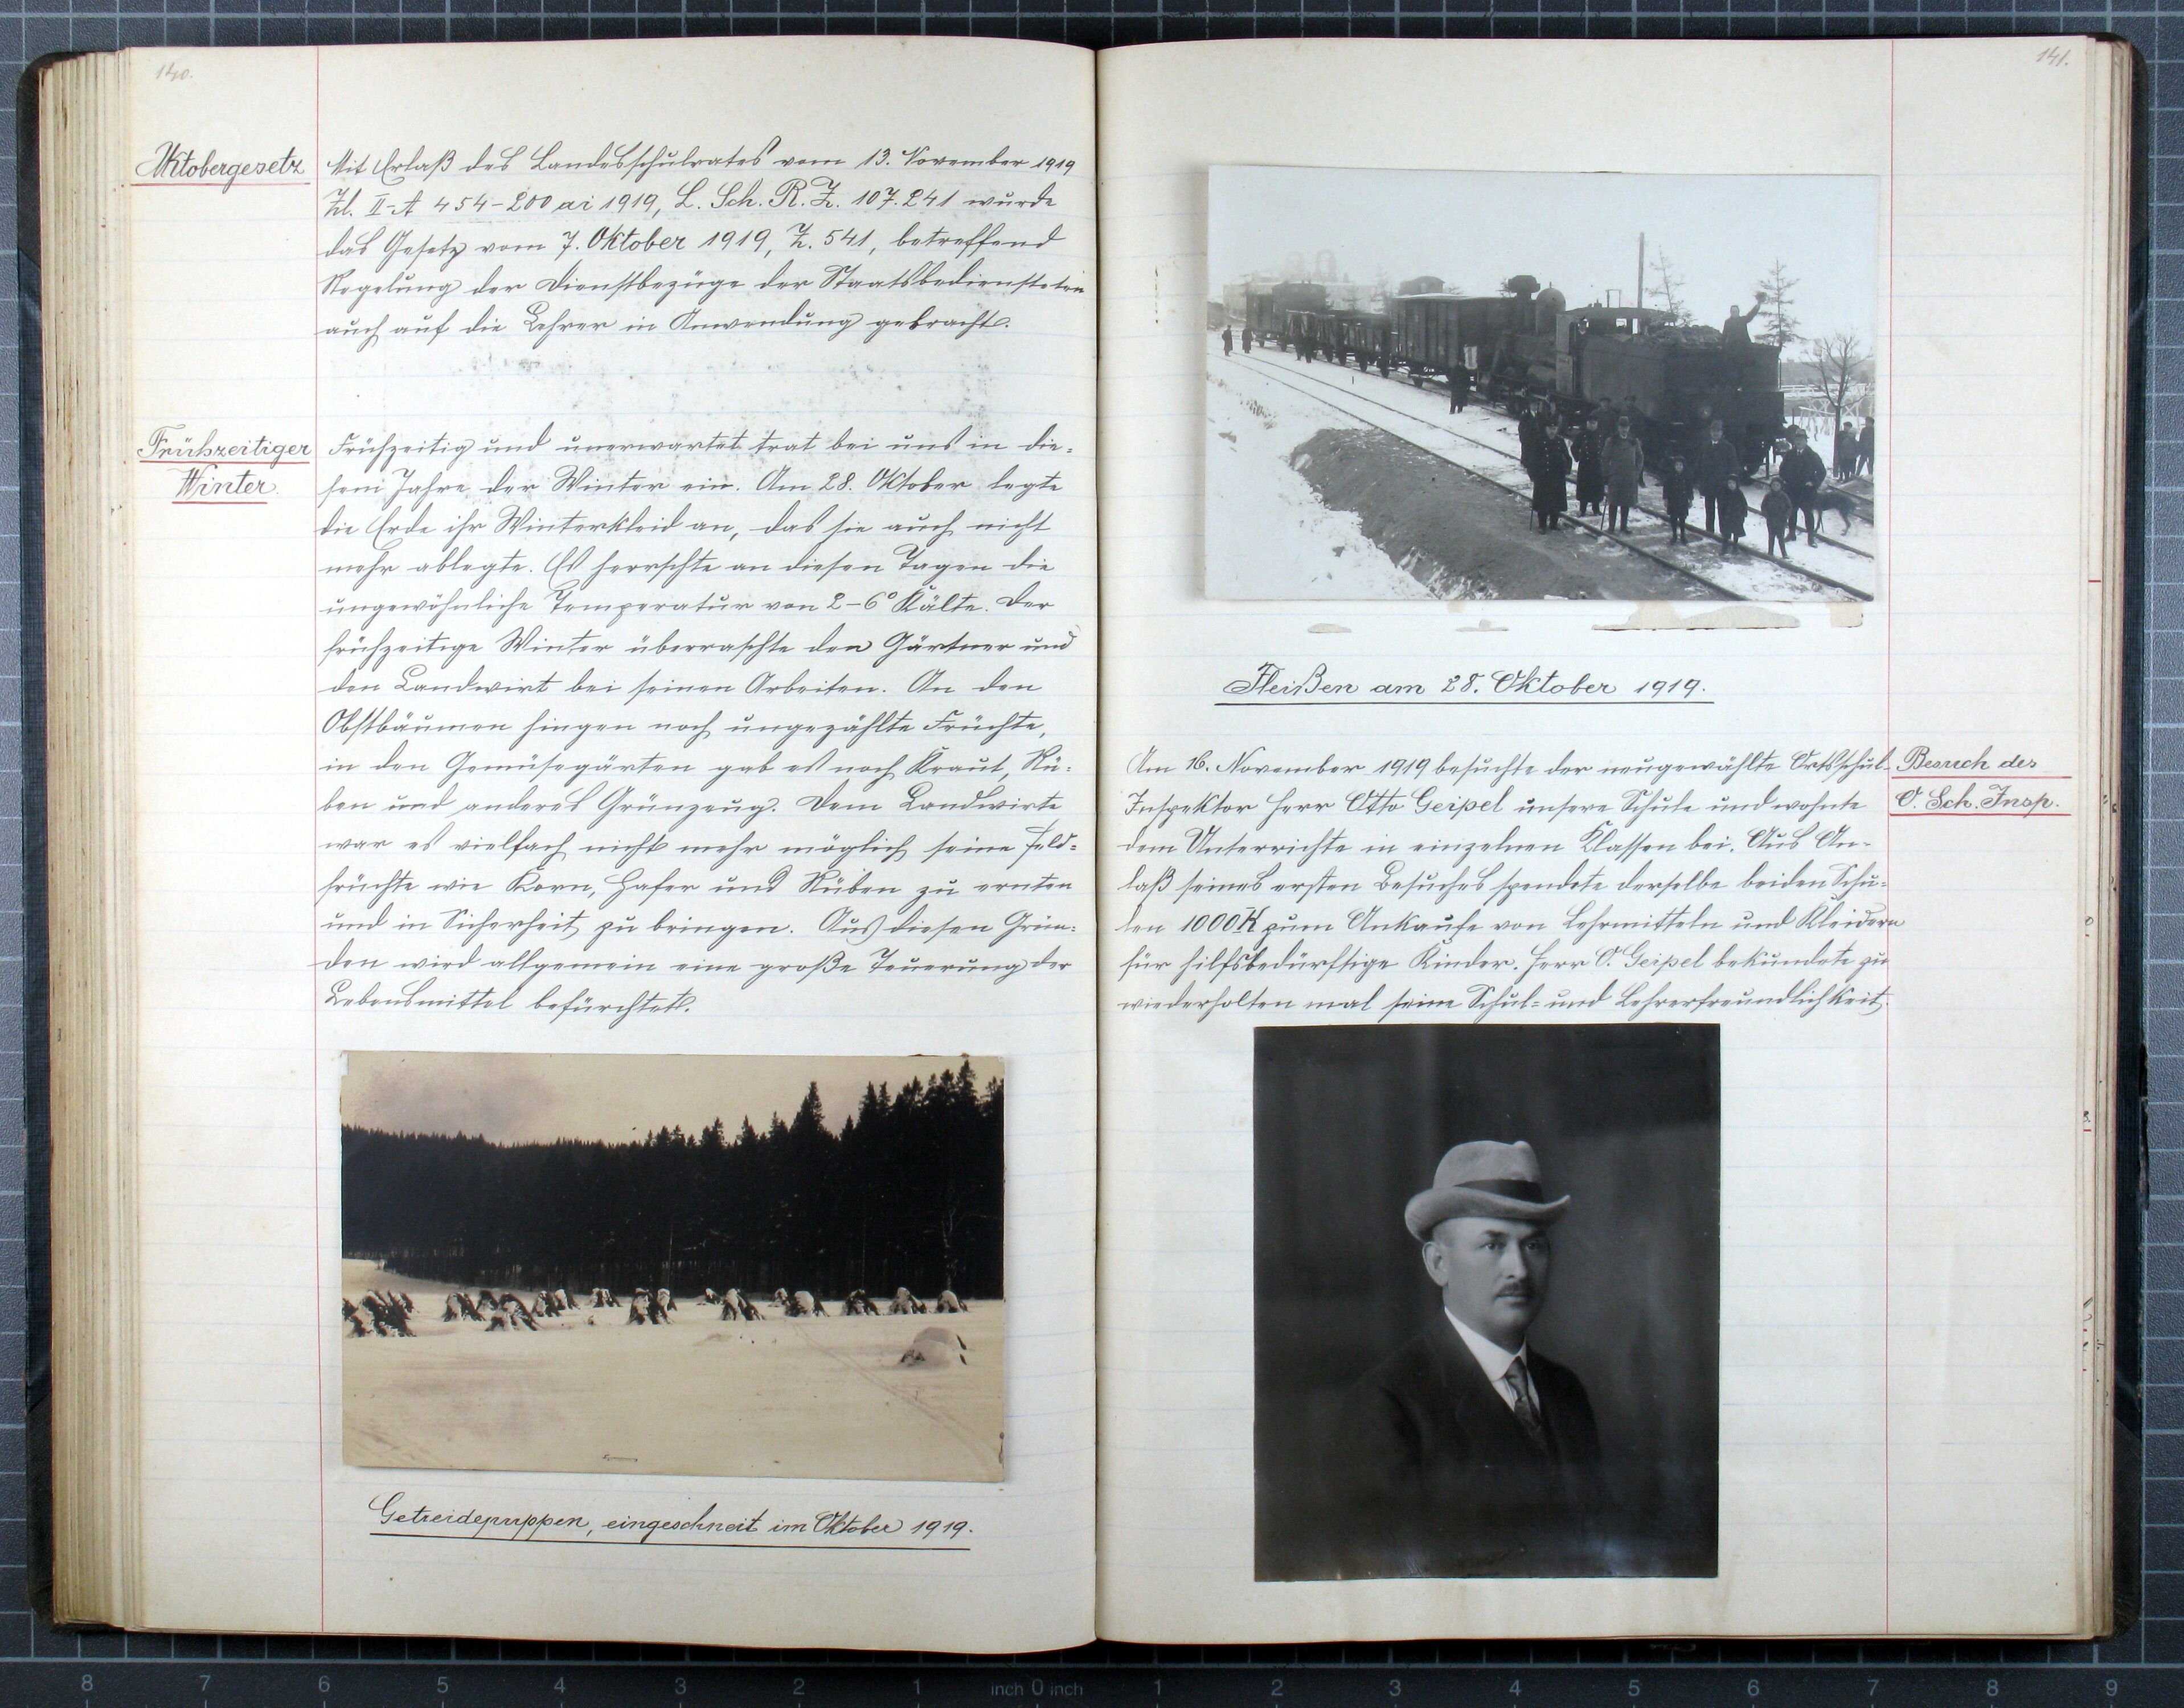 140.
Oktobergesetz
Mit Erlaß des Landesschulrates vom 13. November 1919
Zl. II-A 454-200 ai 1919, L. Sch. R. Z. 107.241 wurde
das Gesetz vom 7. Oktober 1919, Z. 541, betreffend
Regelung der Dienstbezüge der Staatsbediensteten
auch auf die Lehrer in Anwendung gebracht.
Frühzeitiger
Winter.
Frühzeitig und unerwartet trat bei uns in die=
sem Jahre der Winter ein. Am 28. Oktober legte
die Erde ihr Winterkleid an, das sie auch nicht
mehr ablegte. Es herrschte an diesen Tagen die
ungewöhnliche Temperatur von 2-6° Kälte. Der
frühzeitige Winter überraschte den Gärtner und
den Landwirt bei seinen Arbeiten. An den
Obstbäumen hingen noch ungezählte Früchte,
in den Gemüsegärten gab es noch Kraut, Rü=
ben und anderes Grünzeug. Dem Landwirte
war es vielfach nicht mehr möglich seine Feld=
früchte wie Korn, Hafer und Rüben zu ernten
und in Sicherheit zu bringen. Aus diesen Grün=
den wird allgemein eine große Teuerung der
Lebensmittel befürchtet.
Getreidepuppen, eingeschneit im Oktober 1919.
141.
Fleißen am 28. Oktober 1919.
Besuch des
O. Sch. Insp.
Am 16. November 1919 besuchte der neugewählte Ortsschul-
Inspektor Herr Otto Geipel unsere Schule und wohnte
dem Unterrichte in einzelnen Klassen bei. Aus An=
laß seines ersten Besuches spendete derselbe beiden Schu=
len 1000 K zum Ankaufe von Lehrmitteln und Kleidern
für hilfsbedürftige Kinder. Herr O. Geipel bekundete zu
wiederholten mal seine Schul= und Lehrerfreundlichkeit.
8 7 6 5 4 3 2 1 inch 0 inch 1 2 3 4 5 6 7 8 9